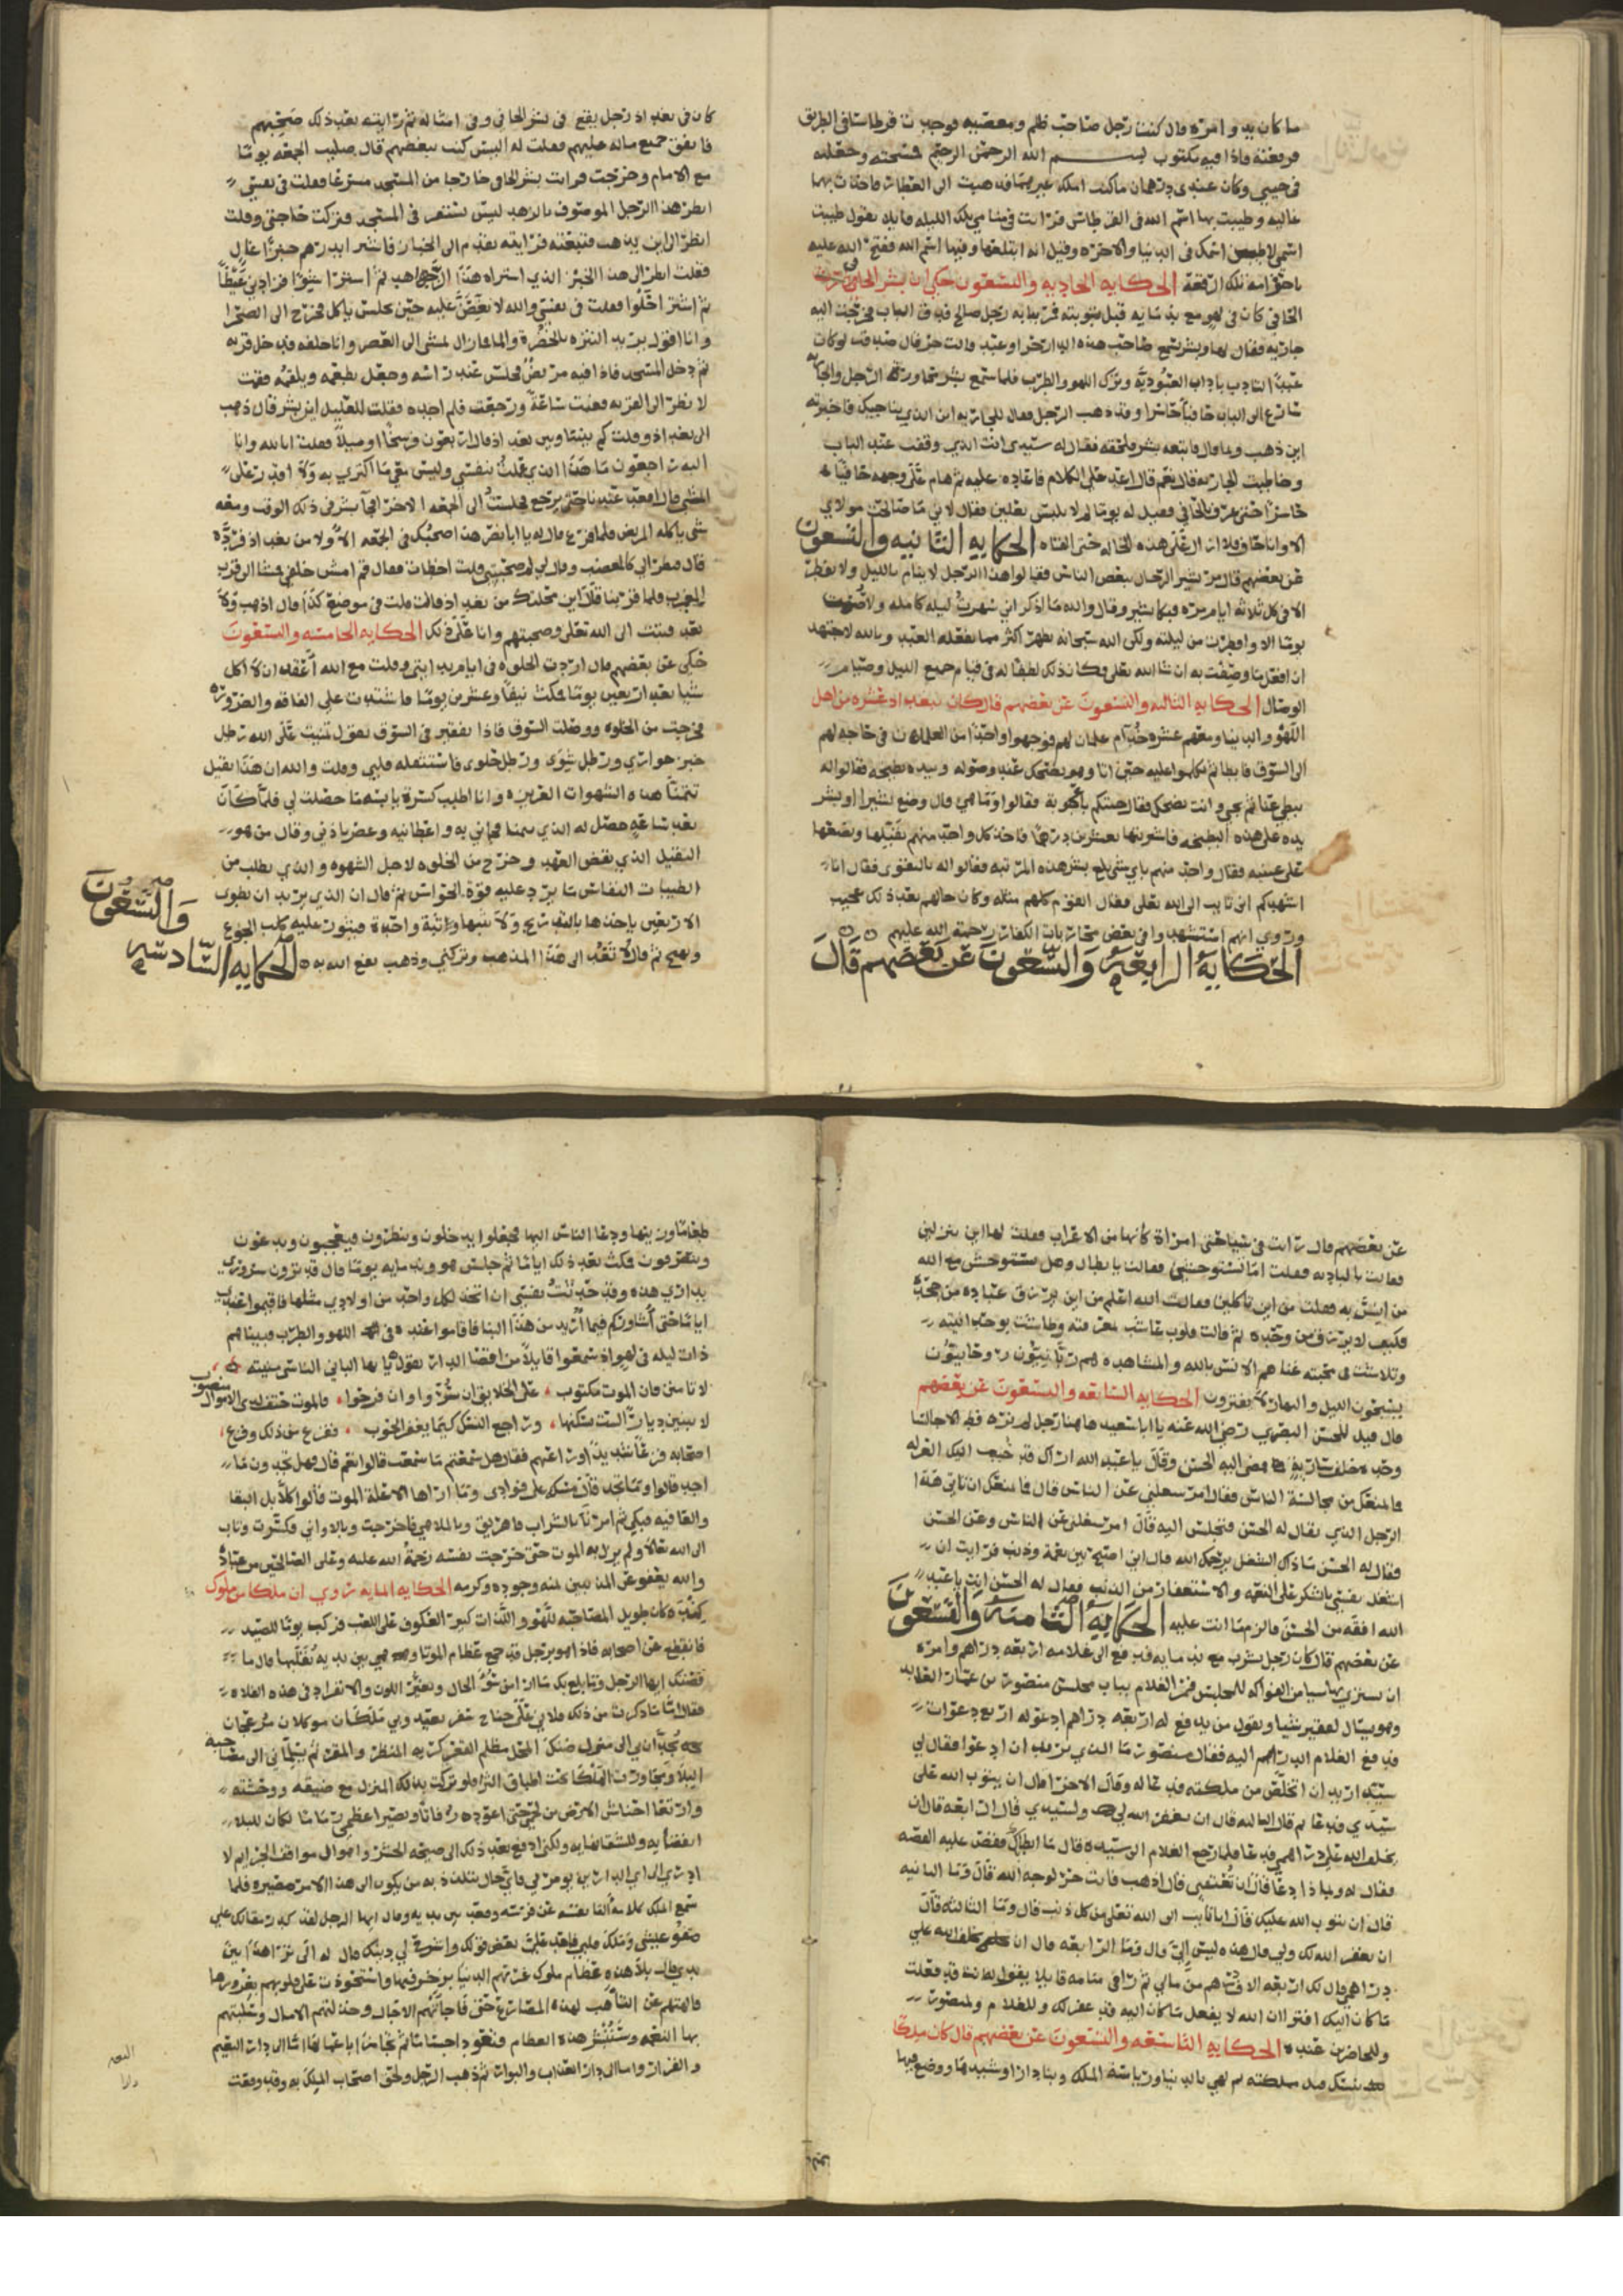 ما كان بدو امره قال كنت رجل صاحب ظلم ومعصيه فوجدت قرطاسا في الطريق
فرفعته فاذا فيه مكتوب بسم الله الرحمن الرحيم فمسحته وجعلته
في جيبي وكان عندي درهمان ما كنت املك غيرهما فذهبت الى العطار فاخذت بهما
غاليه وطيبت بها اسم الله في القرطاس فرايت في منامي تلك الليله قايلا يقول طيبت
اسمي لاطيبن اسمك في الدنيا والاخره وقيل انه ابتلعها وفيها اسم الله ففتح الله عليه
باحترامه تلك الرقعة الحكايه الحاديه والتسعون حكي ان بشر الحافي
الحافي كان في لهو مع ندمايه قبل توبته فمر ببابه رجل صالح فدق الباب فخرجت اليه
جاريه فقال لها وبشر يسمع صاحب هذه الدار حر او عبد قالت حر قال صدقت لو كان
عبدًا لتادب باداب العبوديه وترك اللهو والطرب فلما سمع بشر محاورة الرجل والجاريه
سارع الى الباب حافيًا حاسرا وقد ذهب الرجل فقال للجاريه اين الذي يناجيك فاخبرته
اين ذهب وبما قال فاتبعه بشر فلحقه فقال له سيدي انت الذي وقفت عند الباب
وخاطبت الجاريه قال نعم قال اعد علي الكلام فاعاده عليه ثم هام على وجهه حافيًا
حاسرًا حتى عرف بالحافي فقيل له يومًا لم لا تلبس نعلين فقال لاني ما صالحت مولاي
الا وانا حاف فلا ازال على هذه الحاله حتى القاه الحكايه الثانيه والتسعون
عن بعضهم قال مر بشير الرحال ببعض الناس فقالوا هذا الرجل لا ينام بالليل ولا يفطر
الا في كل ثلاثه ايام مره فبكا بشير وقال والله ما اذكر اني سهرت ليله كامله ولا صمت
يومًا الا وافطرت من ليلته ولكن الله سبحانه يظهر اكثر مما يفعله العبد وبالله لاجتهد
ان افعل ما وصفت به ان شا الله تعلى فكان ذلك لطفًا له في قيام جميع الليل وصيام
الوصال الحكايه الثالثه والتسعون عن بعضهم قال كان ببغداد عشره من اهل
اللهو والدنيا ومعهم عشره خدام غلمان لهم فوجهوا واحدًا من الغلمان في حاجه لهم
الى السوق فابطا ثم تكلموا عليه حتى اتا وهو يضحك عند وصوله وبيده بطيخه فقالوا له
تبطي عنا ثم تجي وانت تضحك فقال جيتكم باعجوبة فقالوا وما هي قال وضع بشير او بشر
يده على هذه البطيخه فاشتريتها بعشرين درهمًا فاخذ كل واحد منهم يقبلها ويضعها
على عينيه فقال واحد منهم باي شي بلغ بشر هذه المرتبه فقالوا له بالتقوى فقال انا
اشهدكم اني تايب الى الله تعلى فقال القوم كلهم مثله وكان حالهم بعد ذلك عجيب
وروي انهم استشهدوا في بعض محاربات الكفار رحمة الله عليهم
الحكاية الرابعة والتسعون عن بعضهم قال
كان في بغداد رجل يقع في بشر الحافي وفي امثاله ثم رايته بعد ذلك صحبهم
فانفق جميع ماله عليهم فقلت له اليس كنت تبغضهم قال صليت الجمعه يومًا
مع الامام وخرجت فرايت بشر الحافي خارجا من المسجد مسرعًا فقلت في نفسي
انظر هذا الرجل الموصوف بالزهد ليس يستقر في المسجد فتركت حاجتي وقلت
انظر الى اين يذهب فتبعته فرايته تقدم الى الخباز فاشترا بدرهم خبزًا
فقلت انظر الى هذا الخبز الذي اشتراه هذا الزاهد ثم اشترا شوًا فزادني غيظًا
ثم اشترا حلوا فقلت في نفسي والله لا نغصن عليه حين يجلس ياكل فخرج الى الصحرا
وانا اقول يريد النزه بالخضره والما فما زال يمشي الى العصر وانا خلفه فدخل قريه
ثم دخل المسجد فاذا فيه مريض فجلس عند راسه وجعل يطعمه ويلقمه فقمت
لا نظر الى القريه فغبت ساعة ورجعت فلم اجده فقلت للعليل اين بشر قال ذهب
الى بغداد وقلت كم بيننا وبين بغداد قال اربعون فرسخًا او ميلًا فقلت انا لله وانا
اليه راجعون ما هذا الذي عملت بنفسي وليس معي ما اكتري به ولا اقدر على
المشي قال اقعد عندنا حتى يرجع فجلست الى الجمعه الاخرا فجا بشر في ذلك الوقت ومعه
شي ياكله المريض فلما فرغ قال له يا ابا نصر هذا صحبك في الجمعه الاولا من بغداد فرده
قال فنظر الي كالمغضب وقال لي لم صحبتني قلت اخطات فقال قم امش خلفي فمشا الى قرب
المغرب فلما قربنا قال اين محلتك من بغداد قلت في موضع كذا قال اذهب ولا
تعد فتبت الى الله تعلى وصحبتهم وانا على ذلك الحكايه الخامسه والتسعون
حكي عن بعضهم قال اردت الخلوه في ايام بدايتي وقلت مع الله اعقد ان لا اكل
شيا بعد اربعين يومًا فمكثت نيفًا وعشرين يومًا فاشتدت علي الفاقه والضروره
فخرجت من الخلوه ووصلت السوق فاذا بفقير في السوق يقول تمنيت على الله رطل
خبز حواري ورطل شوى ورطل حلوى فاستثقله قلبي وقلت والله ان هذا ثقيل
يتمنا هذه الشهوات العزيزه وانا اطلب كسرة يابسه ما حصلت لي فلما كان
بعد ساعه حصل له الذي يتمنا فجاني به واعطانيه وعض باذني وقال من هو
الثقيل الذي نقض العهد وخرج من الخلوه لاجل الشهوه والذي يطلب من
الطيبات النفاس ما يرد عليه قوة الحواس ثم قال ان الذي يريد ان يطوي
الاربعين ياخذها بالتدريج ولا ينبها وثبة واحدة فيثور عليه كلب الجوع
ويهيج ثم قال لا تعد الى هذا المذهب وتركني وذهب نفع الله به الحكايه السادسه
والتسعون
عن بعضهم قال رايت في سياحتي امراة كانها من الاعراب فقلت لها اين تنزلين
فقالت بالباديه فقلت اما تستوحشين فقالت يا بطال وهل يستوحش مع الله
من انس به فقلت من اين تاكلين فقالت الله اعلم من اين يرزق عباده من جحده
فكيف لا يرزق من وحده ثم قالت قلوب عاشت بمعرفته وطاشت بوحدانيته
وتلاشت في محبته غذاهم الانس بالله والمشاهده لهم ربانيون روحانيون
يسبحون الليل والنهار لا يفترون الحكايه السابعه والتسعون عن بعضهم
قال قيل للحسن البصري رضي الله عنه يا ابا سعيد هاهنا رجل لم نره قط الا جالسًا
وحده خلف ساريةٍ فمضى اليه الحسن وقال يا عبد الله اراك قد حببت اليك العزله
فما منعك من مجالسة الناس فقال امر شغلني عن الناس قال فما منعك ان تاتي هذا
الرجل الذي يقال له الحسن فتجلس اليه قال امر شغلني عن الناس وعن الحسن
فقال له الحسن ما ذاك الشغل يرحمك الله قال اني اصبح بين نعمة وذنب فرايت ان
اشغل نفسي بالشكر على النعمه والاستغفار من الذنب فقال له الحسن انت يا عبد
الله افقه من الحسن فالزم ما انت عليه الحكايه الثامنة والتسعون
عن بعضهم قال كان رجل يشرب مع ندمايه فدفع الى غلامه اربعه دراهم وامره
ان يشتري بها شيا من الفواكه للمجلس فمر الغلام بباب مجلس منصور بن عمار
وهو يسال لفقير شيا ويقول من يدفع له اربعه دراهم ادعو له اربع دعوات
فدفع الغلام الدراهم اليه فقال منصور ما الذي تريد ان ادعوا فقال لي
سيد اريد ان اتخلص من ملكته فدعا له وقال الاخرا قال ان يتوب الله على
سيدي فدعا ثم قال الثالثه قال ان يغفر الله لي ولسيدي قال الرابعه قال ان
يخلف الله علي دراهمي فدعا فلما رجع الغلام الى سيده قال ما ابطاك فقص عليه القصه
فقال له وبما ذا دعا قال ان تعتقني قال اذهب فانت حر لوجه الله قال وما الثانيه
قال ان يتوب الله عليك قال انا تايب الى الله تعلى من كل ذنب قال وما الثالثه قال
ان يغفر الله لك ولي قال هذه ليس الي قال وما الرابعه قال ان يخلف الله علي
دراهمي قال لك اربعه الاف درهم من مالي ثم راى في منامه قايلا يقول له انت قد فعلت
ما كان اليك افترا ان الله لا يفعل ما كان اليه قد غفر لك وللغلام ولمنصور
وللحاضرين عنده الحكايه التاسعه والتسعون عن بعضهم قال كان ملكًا
تنسك ملكته ثم لهي بالدنيا ورياسة الملك وبنا دارا وشيدها ووضع فيها
طعامًا وزينها ودعا الناس اليها فجعلوا يدخلون وينظرون فيعجبون ويدعون
وينصرفون فمكث بعد ذلك ايامًا ثم جلس هو وندمايه يومًا قال قد ترون سروري
بداري هذه وقد حدثت نفسي ان اتخذ لكل واحد من اولادي مثلها فاقيموا عندي
ايامًا حتى اشاوركم فيما اريد من هذا البنا فاقاموا عنده في اللهو والطرب فبيناهم
ذات ليله في لهو اذ سمعوا قايلًا من اقصا الدار يقول يا ايها الباني الناسي منيته
لا تامنن فان الموت مكتوب على الخلايق ان سروا وان فرحوا فالموت حتف لذى الامال منصوب
لا تبنين ديارًا لست تسكنها وراجع النسك كيما يغفر الحوب ففزع من ذلك وفزع
اصحابه فزعًا شديدًا وراعهم فقال هل سمعتم ما سمعت قالوا نعم قال فهل تجدون ما
اجد قالوا وما تجد قال مسكه على فوادى وما اراها الا علة الموت قالوا كلا بل البقا
والعافيه فبكي ثم امر بالشراب فاهريق وبالملاهي فاخرجت وبالاواني فكسرت وتاب
الى الله تعالى ولم يزل به الموت حتى خرجت نفسه رحمة الله عليه وعلى الصالحين من عباده
والله يعفو عن المذنبين بمنه وجوده وكرمه الحكايه المايه روي ان ملكا من ملوك
كنده كان طويل المصاحبه للهو واللذات كبير العكوف على اللعب فركب يومًا للصيد
فانقطع عن اصحابه فاذا هو برجل قد جمع عظام الموتا وهي بين يديه يقلبها قال ما
قصتك ايها الرجل وما بلغ بك ما ارا من سو الحال وتغير اللون والانفراد في هذه الفلاه
فقال اما ما ذكرت من ذلك فلاني على جناح سفر بعيد وبي ملكان موكلان مزعجان
يجدان بي الى منزل ضنك المحل مظلم القعر كريه المنظر والمقر ثم يسلماني الى مصاحبة
البلا ومجاورة الهلكا تحت اطباق الثرا فلو تركت بذلك المنزل مع ضيقه ووحشته
وارتعا اخشاش الارض من لحمي حتى اعود رفاتًا وتصير اعظمي رمامًا لكان للبلا
انقضا به وللشقا نهايه ولكنى ادفع بعد ذلك الى صيحه الحشر واهوال مواقف الجزا ثم لا
ادري الى اي الدارين يومر بي فاي حال يتلذذ به من يكون الى هذا الامر مصيره فلما
سمع الملك كلامه القا نفسه عن فرسه وقعد بين يديه وقال ايها الرجل لقد كدر مقالك علي
صفو عيشي وملك قلبي فاعد علي بعض قولك واشرح لي دينك قال له اما ترا هذا بين
يدي قال بلا هذه عظام ملوك غرتهم الدنيا بزخرفها واستحوذت على قلوبهم بغرورها
فالهتهم عن التاهب لهذه المصارع حتى فاجاتهم الاجال وخذلتهم الامال وسلبتهم
بها النعمه وستنشر هذه العظام فتعود اجسامًا ثم تجازا باعمالها اما الى دار النعيم
والقرار واما الى دار العذاب والبوار ثم ذهب الرجل ولحق اصحاب الملك به وقد وقعت